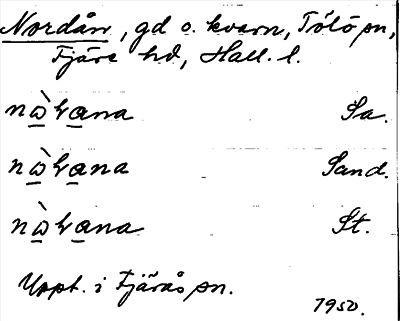 Nordån, gd o. kvarn, Tölö sn,
Fjäre hd, Hall. l.
nὼrana Sa.
nὼrana Sand.
nὼrana St.
Uppt. i Fjärås sn.
1950.